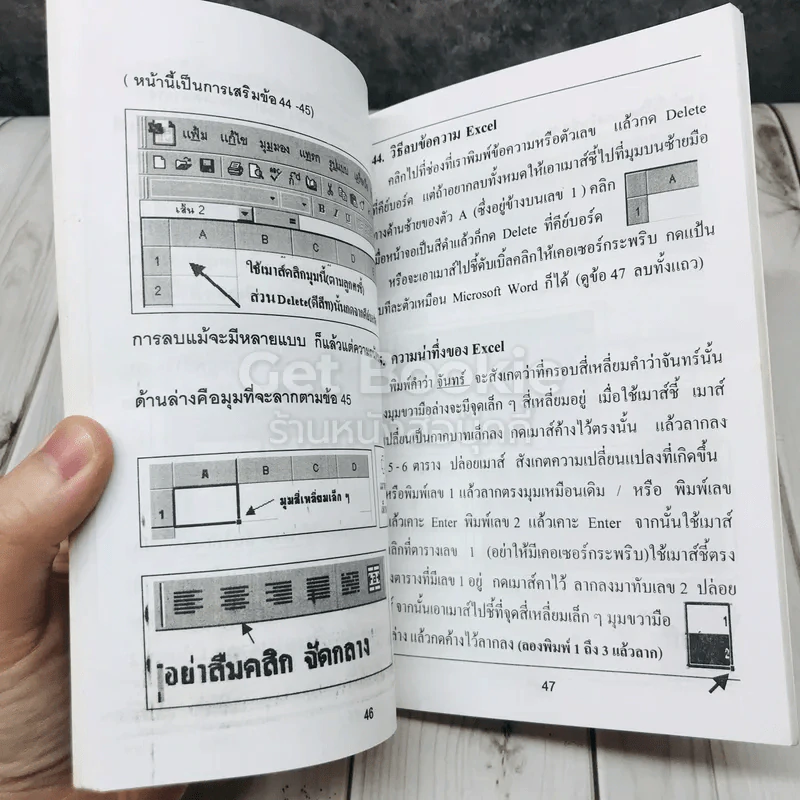 ( หน้านี้เป็นการเสริมข้อ 44 -45)
แฟ้ม แก้ไข มุมมอง แทรก รูปแบบ
B I U
เส้น 2 =
A B C D
1
2
ใช้เมาส์คลิกมุมนี้(ตามลูกศรชี้)
ส่วน Delete(ดีลีท)นั้นกดจากคีย์บอร์ด
การลบแม้จะมีหลายแบบ ก็แล้วแต่ความ
ด้านล่างคือมุมที่จะลากตามข้อ 45
A B C D
1
มุมสี่เหลี่ยมเล็ก ๆ
อย่าลืมคลิก จัดกลาง
46
44. วิธีลบข้อความ Excel
คลิกไปที่ช่องที่เราพิมพ์ข้อความหรือตัวเลข แล้วกด Delete
ที่คีย์บอร์ด แต่ถ้าอยากลบทั้งหมดให้เอาเมาส์ชี้ไปที่มุมบนซ้ายมือ
ทางด้านซ้ายของตัว A (ซึ่งอยู่ข้างบนเลข 1 ) คลิก
เมื่อหน้าจอเป็นสีดำแล้วก็กด Delete ที่คีย์บอร์ด
A
1
หรือจะเอาเมาส์ไปชี้ดับเบิ้ลคลิกให้เคอเซอร์กระพริบ กดแป้น
ลบทีละตัวเหมือน Microsoft Word ก็ได้ (ดูข้อ 47 ลบทั้งแถว)
ความน่าทึ่งของ Excel
พิมพ์คำว่า จันทร์ จะสังเกตว่าที่กรอบสี่เหลี่ยมคำว่าจันทร์นั้น
มุมขวามือล่างจะมีจุดเล็ก ๆ สี่เหลี่ยมอยู่ เมื่อใช้เมาส์ชี้ เมาส์
เปลี่ยนเป็นกากบาทเล็กลง กดเมาส์ค้างไว้ตรงนั้น แล้วลากลง
5 - 6 ตาราง ปล่อยเมาส์ สังเกตความเปลี่ยนแปลงที่เกิดขึ้น
หรือพิมพ์เลข 1 แล้วลากตรงมุมเหมือนเดิม / หรือ พิมพ์เลข
แล้วเคาะ Enter พิมพ์เลข 2 แล้วเคาะ Enter จากนั้นใช้เมาส์
คลิกที่ตารางเลข 1 (อย่าให้มีเคอเซอร์กระพริบ)ใช้เมาส์ชี้ตรง
ตารางที่มีเลข 1 อยู่ กดเมาส์คาไว้ ลากลงมาทับเลข 2 ปล่อย
จากนั้นเอาเมาส์ไปชี้ที่จุดสี่เหลี่ยมเล็ก ๆ มุมขวามือ
ล่าง แล้วกดค้างไว้ลากลง (ลองพิมพ์ 1 ถึง 3 แล้วลาก)
1
2
47
Get Bookie
ร้านหนังสือบุ๊คกี้